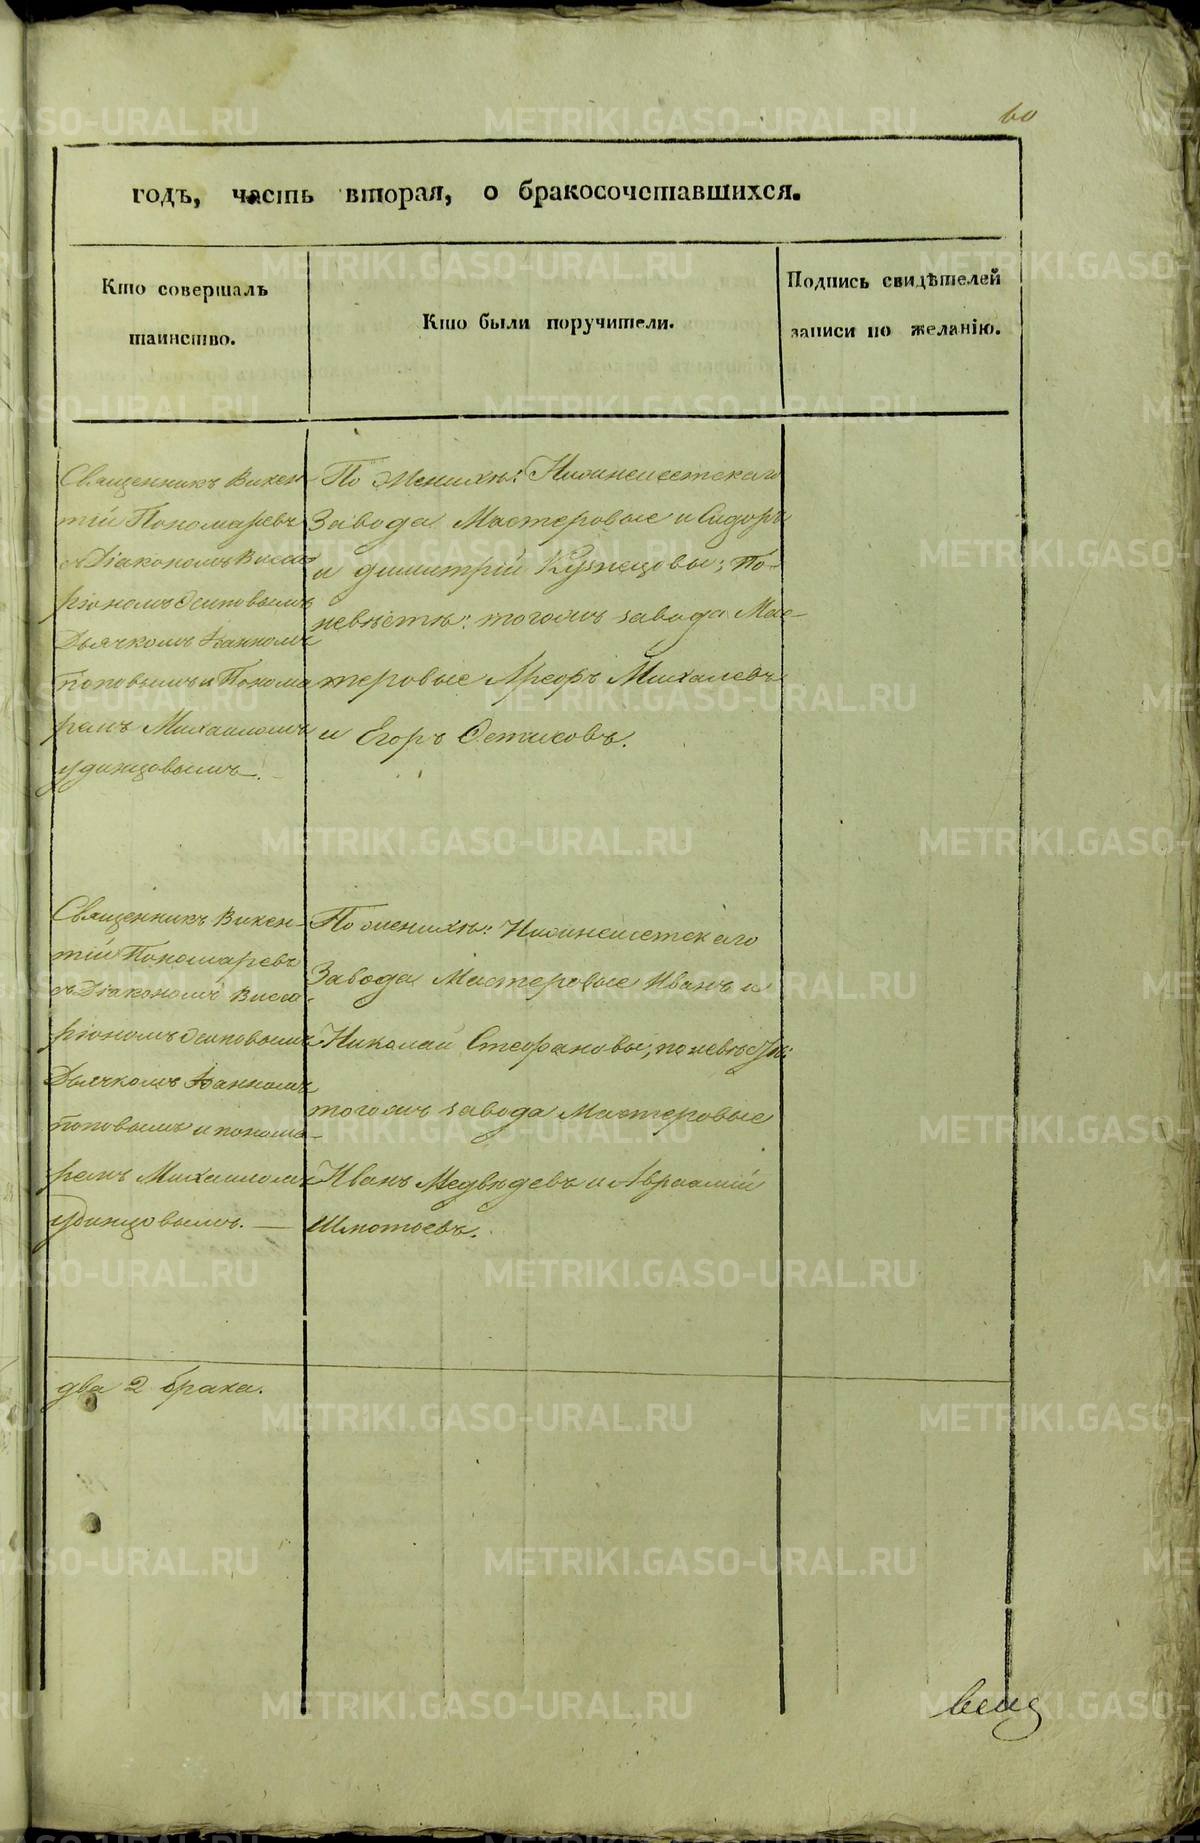 60
годъ, часть вторая, о бракосочетавшихся.
Кто совершалъ
таинство.
Кто были поручители.
Подпись свидѣтелей
записи по желанію.
Священникъ Викен-
тій Пономаревъ
съ Діакономъ Висса-
ріономъ Осиповымъ
Дьячкомъ Іоанномъ
Поповымъ и Понома
ремъ Михаиломъ
Удинцовымъ.
По Женихѣ: Нижнеисетскаго
Завода Мастеровые и Сидоръ
и Димитрій Кузнецовы; По
невѣстѣ: тогожъ завода Мас-
теровые Михалевъ
и Егоръ
Священникъ Викен-
тій Пономаревъ
съ Діакономъ Висса-
ріономъ Осиповымъ
Дьячкомъ Іоанномъ
Поповымъ и понома-
ремъ Михаиломъ
Удинцовымъ. —
По женихѣ: Нижнеисетскаго
Завода Мастеровые Иванъ и
Николай Стефановы; по невѣстѣ:
тогожъ завода Мастеровые
Иванъ Медвѣдевъ и Авраамій
два 2 брака.
METRIKI.GASO-URAL.RU